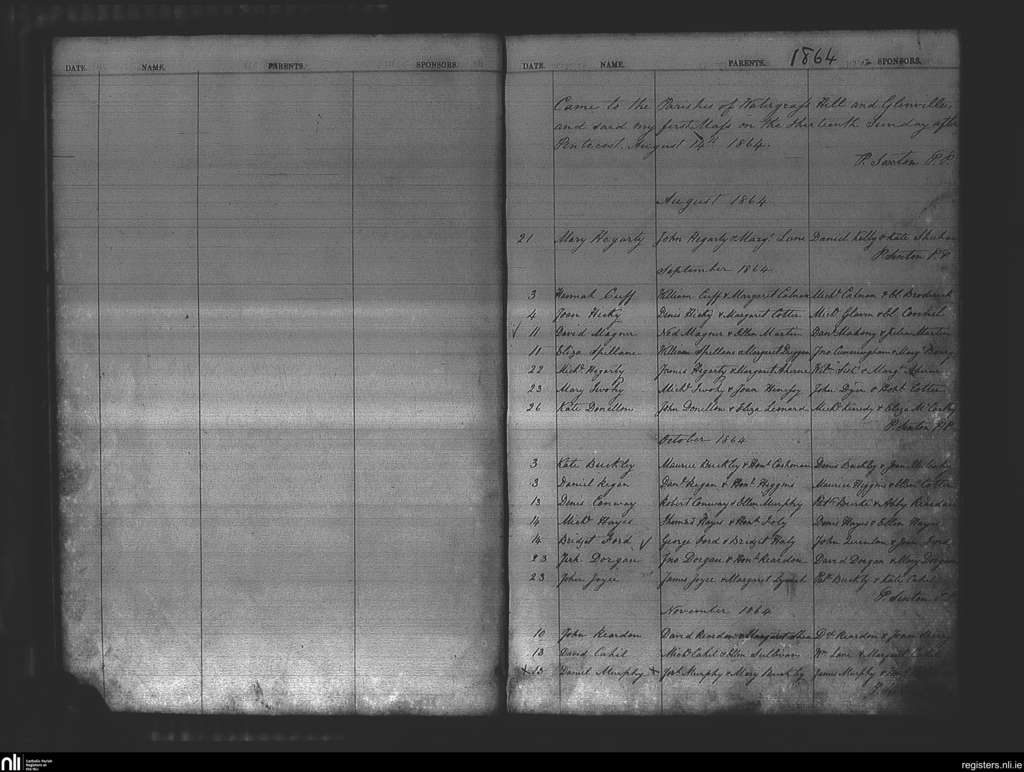 DATE. NAME. PARENTS. SPONSORS.
DATE. NAME. PARENTS. 1864 SPONSORS.
Came to the Parishes of Watergrass Hill and Glenville,
and said my first Mass on the thirteenth Sunday after
Pentecost. August 14th 1864.
P. Sexton P.P.
August 1864
21 Mary Hegarty John Hegarty & Margt Lane Daniel Kelly & Kate Sheehan
P. Sexton P.P.
September 1864
3 Hannah Cuff William Cuff & Margaret Calnan Michl Calnan & Broderick
4 Joan Hicky Denis Hicky & Margaret Cotter Michl Glavin &
11 David Magner Ned Magner & Ellen Martin Danl Mahony & Julia Martin
11 Eliza Spellane William Spellane & Margaret Duggan Jno Cunningham & Mary
22 Michl Hegarty James Hegarty & Margaret Aherne & Margt Ahern
23 Mary Twohy Michl Twohy & Joan Hennessy John Dyer & Cotter
26 Kate Donellon John Donellon & Eliza Leonard Michl & Eliza McCarthy
P. Sexton P.P.
October 1864
3 Kate Buckley Maurice Buckley & Hont Cashman Denis Buckley &
3 Daniel Regan Danl Regan & Hont Higgins Maurice Higgins & Ellen Cotter
13 Denis Conway Robert Conway & Ellen Murphy Patk Burke & Abby Reardon
14 Michl Hayes Thomas Hayes & Hont Foly Denis Hayes & Ellen Hayes
14 Bridget Ford George Ford & Bridget Haly John Quinlan & Ford
23 Jerh Dorgan Jno Dorgan & Hont Reardon David Dorgan & Mary Dorgan
23 John Joyce James Joyce & Margaret Lynch Patk Buckley & Kate
P. Sexton P.P.
November 1864
10 John Reardon David Reardon & Margaret Shea Reardon & Joan
13 David Cahil Michl Cahil & Ellen Sullivan Wm Lane & Margaret
13 Daniel Murphy Murphy & Mary Buckley James Murphy &
nli Catholic Parish Registers at the NLI
registers.nli.ie